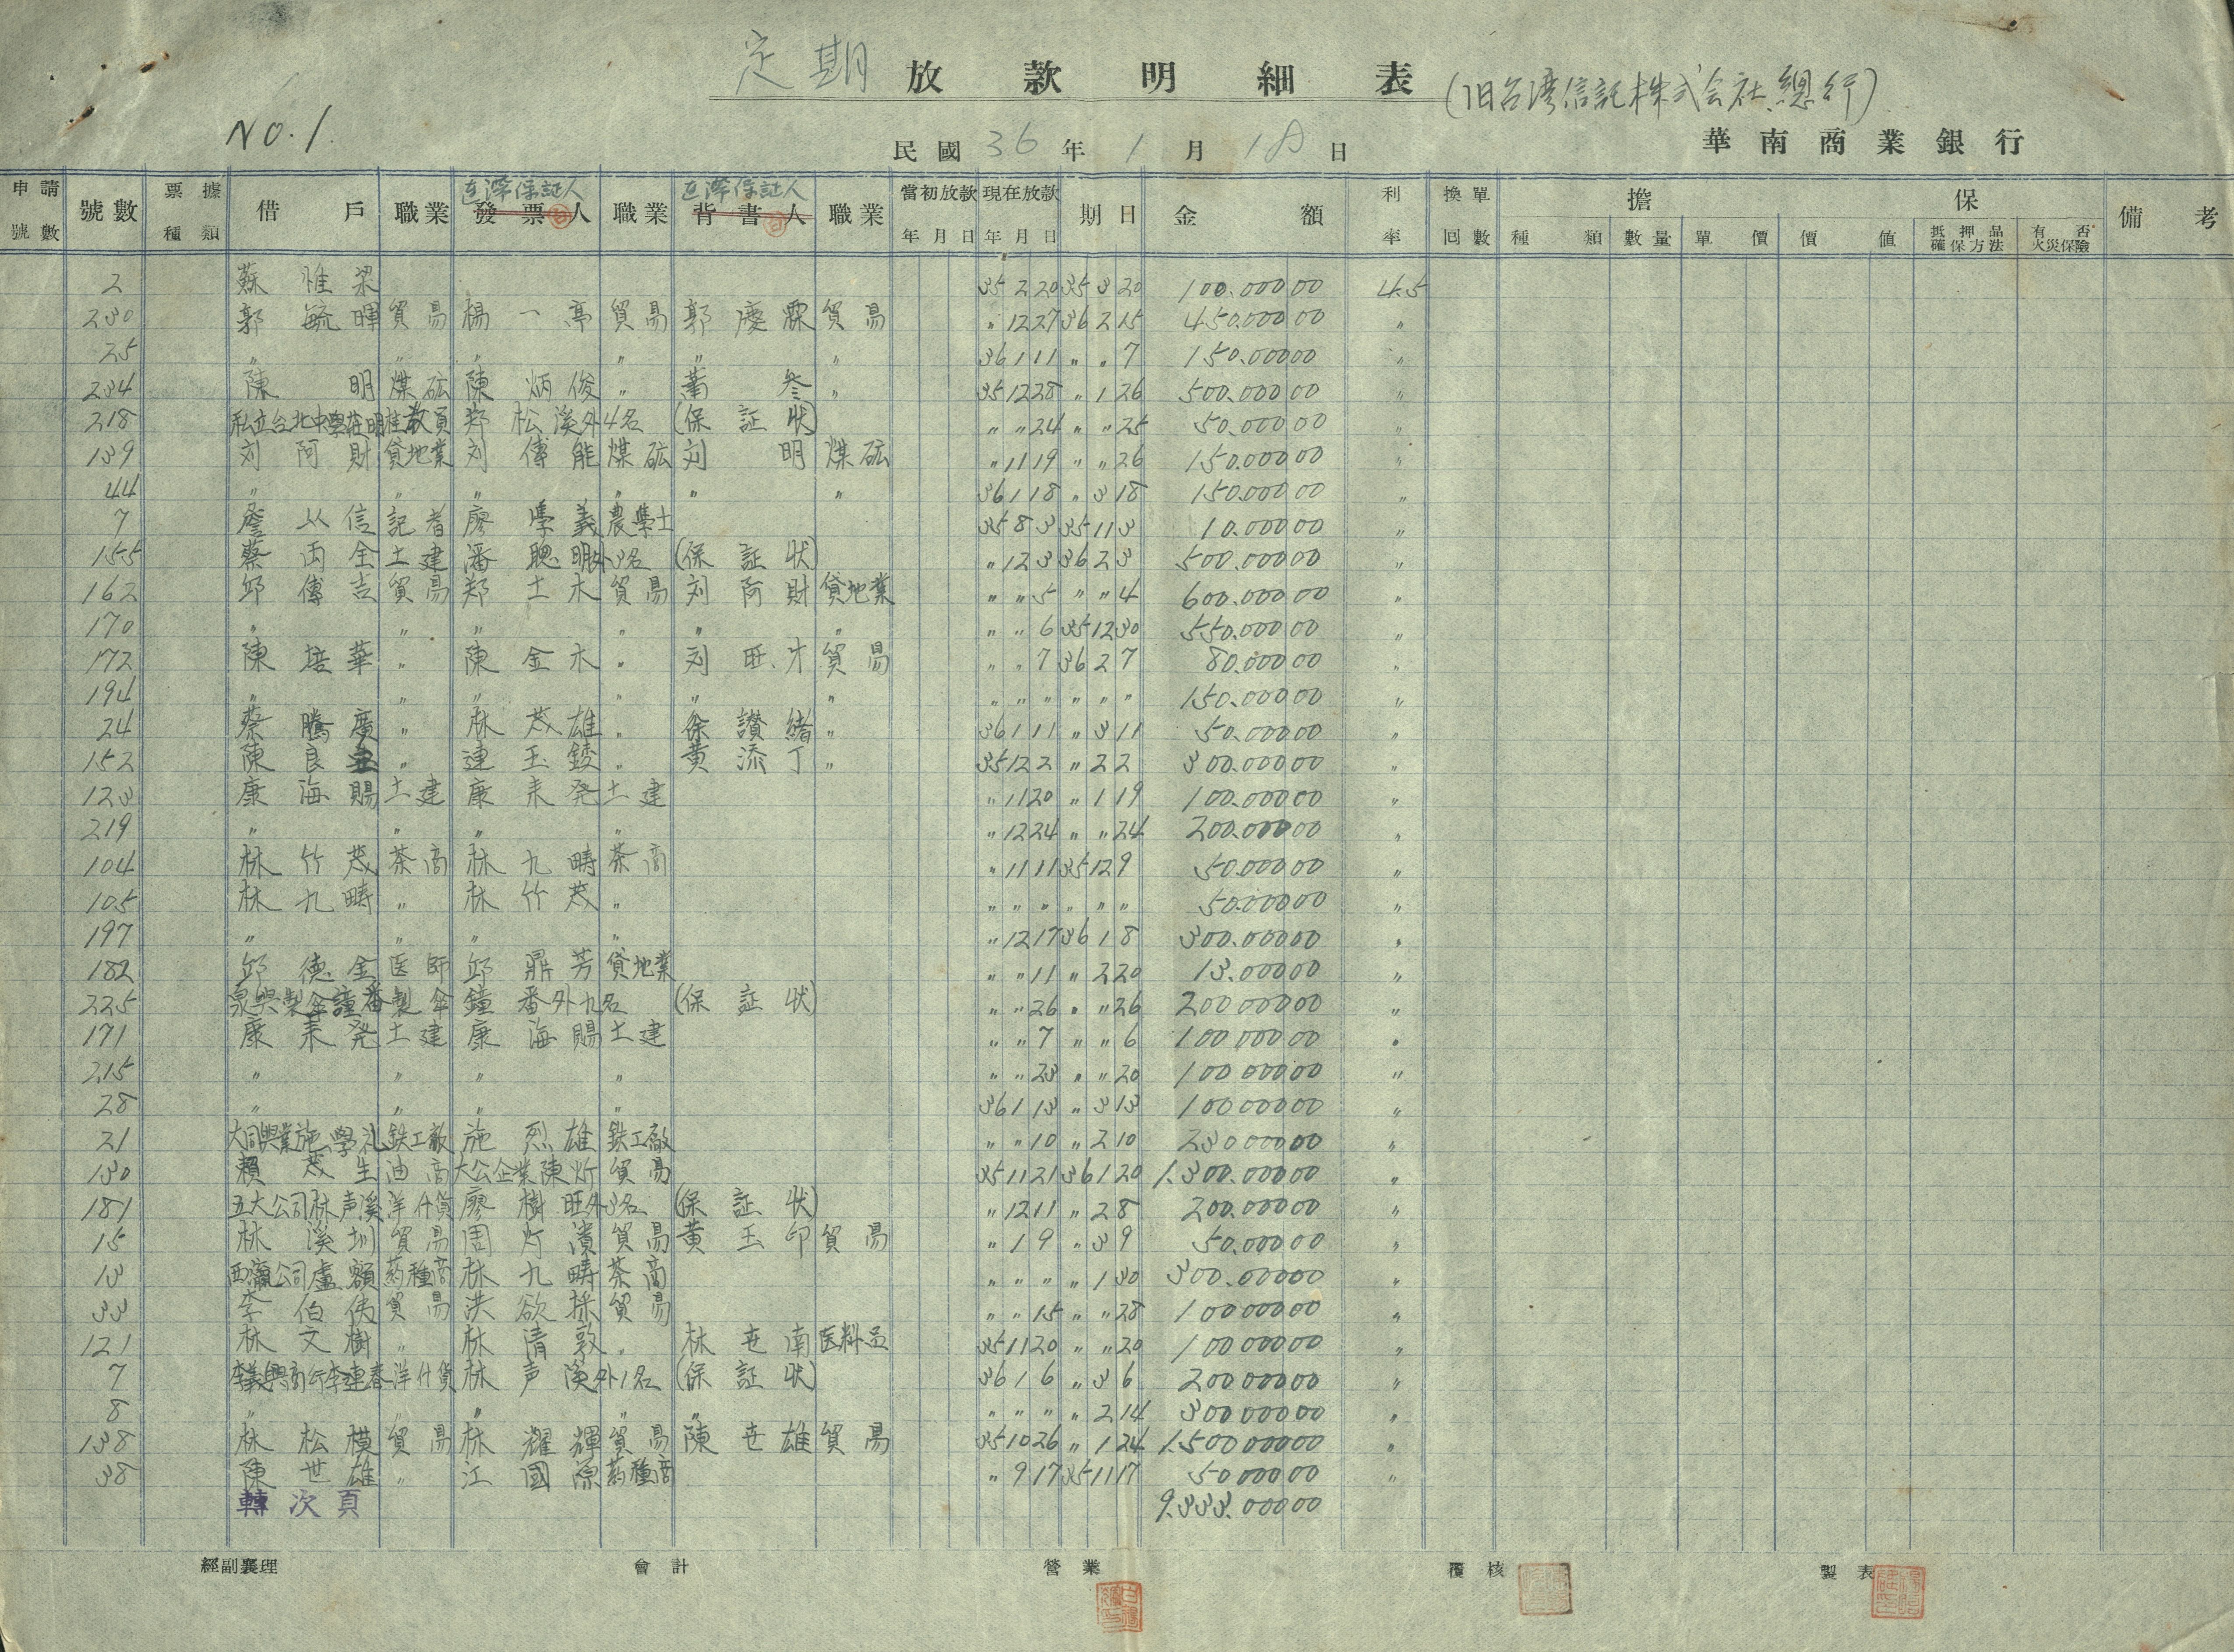 定期 放款明細表 (旧台湾信託株式会社總行)
NO.1
民國 36 年 1 月 18 日
華南商業銀行
申請號數 號數 票據種類 借戶 職業 連帶保証人 發票人 職業 連帶保証人 背書人 職業 當初放款年月日 現在放款年月日 期日 金額 利率 換單回數 擔保 備考
種類 數量 單價 價值 抵押品確保方法 有否火災保險
2 蘇惟梁 35 2 20 35 3 20 100.000 00 4.5
230 郭毓暉 貿易 楊一亭 貿易 郭慶霖 貿易 〃 12 27 36 2 15 450.000 00 〃
25 〃 〃 〃 〃 〃 〃 36 1 11 〃 〃 7 150.000 00 〃
234 陳明 煤砿 陳炳俊 〃 蕭参 〃 35 12 28 〃 1 26 500.000 00 〃
218 私立台北中學莊明桂 教員 郑松溪外4名 (保証状) 〃 〃 24 〃 〃 25 50.000 00 〃
139 刘阿財 貸地業 刘傳能 煤砿 刘明 煤砿 〃 11 19 〃 〃 26 150.000 00 〃
44 〃 〃 〃 〃 〃 〃 36 1 18 〃 3 18 150.000 00 〃
7 詹以信 記者 廖學義 農學士 35 8 3 35 11 3 10.000 00 〃
155 蔡両全 土建 潘聰明外3名 (保証状) 〃 12 3 36 2 3 500.000 00 〃
162 邱傳吉 貿易 郑土木 貿易 刘阿財 貸地業 〃 〃 5 〃 〃 4 600.000 00 〃
170 〃 〃 〃 〃 〃 〃 〃 〃 6 35 12 30 550.000 00 〃
172 陳培華 〃 陳金木 〃 刘旺才 貿易 〃 〃 7 36 2 7 80.000 00 〃
194 〃 〃 〃 〃 〃 〃 〃 〃 〃 〃 〃 〃 150.000 00 〃
24 蔡騰廣 〃 林茂雄 〃 徐讃緒 〃 36 1 11 〃 3 11 50.000 00 〃
152 陳良 〃 連玉錂 〃 黄添丁 〃 35 12 2 〃 2 2 300.000 00 〃
123 康海賜 土建 康来発 土建 〃 11 20 〃 1 19 100.000 00 〃
219 〃 〃 〃 〃 〃 12 24 〃 〃 24 200.000 00 〃
104 林竹茂 茶商 林九疇 茶商 〃 11 11 35 12 9 50.000 00 〃
105 林九疇 〃 林竹茂 〃 〃 〃 〃 〃 〃 〃 50.000 00 〃
197 〃 〃 〃 〃 〃 12 17 36 1 8 300.000 00 〃
182 邱德金 医師 邱鼎芳 貸地業 〃 〃 11 〃 2 20 13.000 00 〃
225 泉興製傘鐘番 製傘 鐘番外九名 (保証状) 〃 〃 26 〃 〃 26 200 000 00 〃
171 康来発 土建 康海賜 土建 〃 〃 7 〃 〃 6 100 000 00 〃
215 〃 〃 〃 〃 〃 〃 23 〃 〃 20 100 000 00 〃
28 〃 〃 〃 〃 36 1 13 〃 3 13 100 000 00 〃
21 大同興業施學礼 鉄工廠 施烈雄 鉄工廠 〃 〃 10 〃 2 10 230 000 00 〃
130 賴茂生 油商 大公企業陳炘 貿易 35 11 21 36 1 20 1.300.000 00 〃
181 五大公司林声溪 洋什貨 廖樹旺外3名 (保証状) 〃 12 11 〃 2 8 200.000 00 〃
15 林溪圳 貿易 周灯濱 貿易 黄玉印 貿易 〃 1 9 〃 3 9 50.000 00 〃
13 西瀛公司盧額 药種商 林九疇 茶商 〃 〃 〃 〃 1 30 300.000 00 〃
33 李伯侯 貿易 洪欲採 貿易 〃 〃 15 〃 〃 28 100 000 00 〃
121 林文樹 〃 林清敦 〃 林世南 医料品 35 11 20 〃 〃 20 100 000 00 〃
7 李義興商行李連春 洋什貨 林声溪外1名 (保証状) 36 1 6 〃 3 6 200 000 00 〃
8 〃 〃 〃 〃 〃 〃 〃 〃 〃 2 14 300 000 00 〃
138 林松模 貿易 林耀輝 貿易 陳世雄 貿易 35 10 26 〃 1 24 1.500 000 00 〃
38 陳世雄 〃 江國源 药種商 〃 9 17 35 11 17 50 000 00 〃
轉次頁 9.333.000 00
經副襄理 會計 營業 覆核 製表